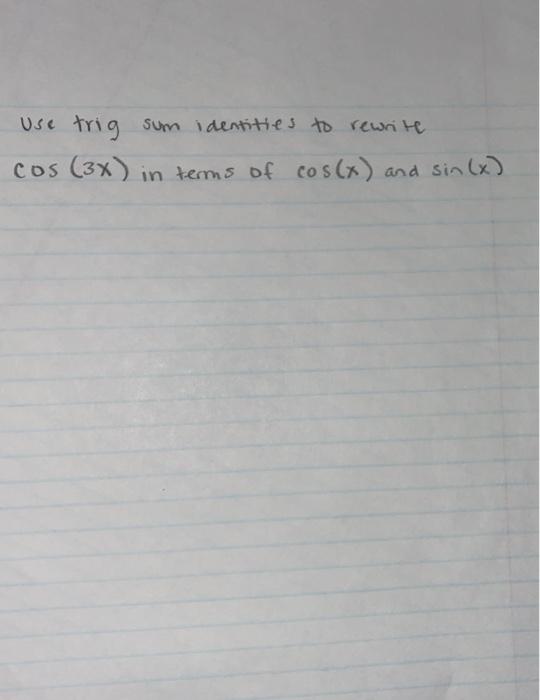 Use trig sum identities to rewrite
cos (3x) in terms of cos(x) and sin(x)